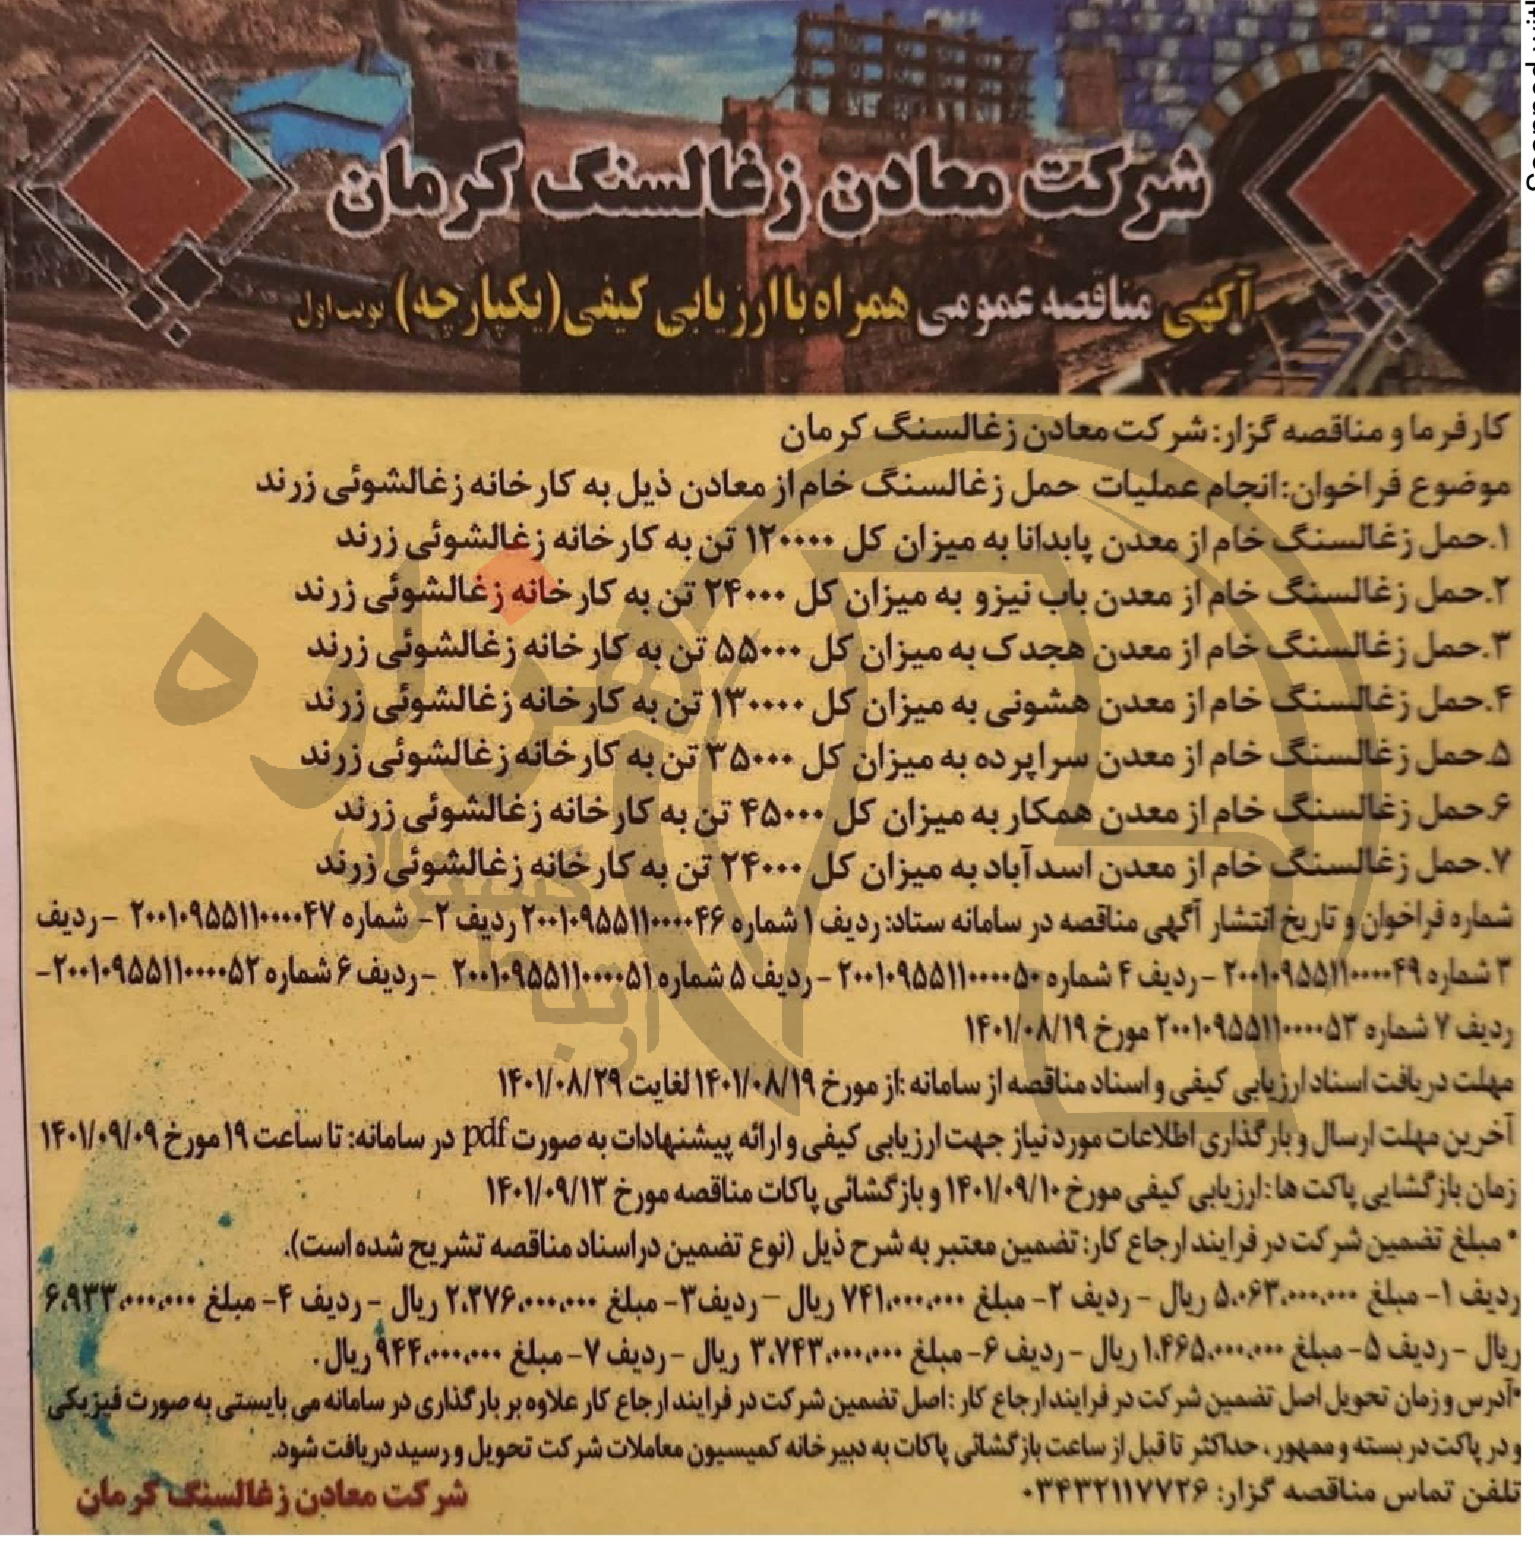 شرکت معادن زغالسنگ کرمان
آگهی مناقصه عمومی همراه با ارزیابی کیفی (یکپارچه) نوبت اول
کارفرما و مناقصه گزار: شرکت معادن زغالسنگ کرمان
موضوع فراخوان: انجام عملیات حمل زغالسنگ خام از معادن ذیل به کارخانه زغالشوئی زرند
۱.حمل زغالسنگ خام از معدن پابدانا به میزان کل ۱۲۰۰۰۰ تن به کارخانه زغالشوئی زرند
۲.حمل زغالسنگ خام از معدن باب نیزو به میزان کل ۲۴۰۰۰ تن به کارخانه زغالشوئی زرند
۳.حمل زغالسنگ خام از معدن هجدک به میزان کل ۵۵۰۰۰ تن به کارخانه زغالشوئی زرند
۴.حمل زغالسنگ خام از معدن هشونی به میزان کل ۱۳۰۰۰۰ تن به کارخانه زغالشوئی زرند
۵.حمل زغالسنگ خام از معدن سراپرده به میزان کل ۳۵۰۰۰ تن به کارخانه زغالشوئی زرند
۶.حمل زغالسنگ خام از معدن همکار به میزان کل ۴۵۰۰۰ تن به کارخانه زغالشوئی زرند
۷.حمل زغالسنگ خام از معدن اسدآباد به میزان کل ۲۴۰۰۰ تن به کارخانه زغالشوئی زرند
شماره فراخوان و تاریخ انتشار آگهی مناقصه در سامانه ستاد: ردیف ۱ شماره ۲۰۰۱۰۹۵۵۱۱۰۰۰۰۴۶ ردیف ۲- شماره ۲۰۰۱۰۹۵۵۱۱۰۰۰۰۴۷ -ردیف
۳ شماره ۲۰۰۱۰۹۵۵۱۱۰۰۰۰۴۹ -ردیف ۴ شماره ۲۰۰۱۰۹۵۵۱۱۰۰۰۰۵۰ -ردیف ۵ شماره ۲۰۰۱۰۹۵۵۱۱۰۰۰۰۵۱ -ردیف ۶ شماره ۲۰۰۱۰۹۵۵۱۱۰۰۰۰۵۲-
ردیف ۷ شماره ۲۰۰۱۰۹۵۵۱۱۰۰۰۰۵۳ مورخ ۱۴۰۱/۰۸/۱۹
مهلت دریافت اسناد ارزیابی کیفی و اسناد مناقصه از سامانه :از مورخ ۱۴۰۱/۰۸/۱۹ لغایت ۱۴۰۱/۰۸/۲۹
آخرین مهلت ارسال و بارگذاری اطلاعات مورد نیاز جهت ارزیابی کیفی و ارائه پیشنهادات به صورت pdf در سامانه: تا ساعت ۱۹ مورخ ۱۴۰۱/۰۹/۰۹
زمان بازگشایی پاکت ها :ارزیابی کیفی مورخ ۱۴۰۱/۰۹/۱۰ و بازگشائی پاکات مناقصه مورخ ۱۴۰۱/۰۹/۱۳
* مبلغ تضمین شرکت در فرایند ارجاع کار: تضمین معتبر به شرح ذیل (نوع تضمین در اسناد مناقصه تشریح شده است).
ردیف ۱- مبلغ ۵،۰۶۳،۰۰۰،۰۰۰ ریال - ردیف ۲- مبلغ ۷۴۱،۰۰۰،۰۰۰ ریال - ردیف۳- مبلغ ۲،۳۷۶،۰۰۰،۰۰۰ ریال - ردیف ۴- مبلغ ۶،۹۳۳،۰۰۰،۰۰۰
ریال - ردیف ۵- مبلغ ۱،۴۶۵،۰۰۰،۰۰۰ ریال - ردیف ۶- مبلغ ۳،۷۴۳،۰۰۰،۰۰۰ ریال - ردیف ۷- مبلغ ۹۴۴،۰۰۰،۰۰۰ ریال .
*آدرس و زمان تحویل اصل تضمین شرکت در فرایند ارجاع کار :اصل تضمین شرکت در فرایند ارجاع کار علاوه بر بارگذاری در سامانه می بایستی به صورت فیزیکی
و در پاکت در بسته و ممهور ، حداکثر تا قبل از ساعت بازگشائی پاکات به دبیرخانه کمیسیون معاملات شرکت تحویل و رسید دریافت شود.
تلفن تماس مناقصه گزار: ۰۳۴۳۲۱۱۷۷۲۶
شرکت معادن زغالسنگ کرمان
هزاره